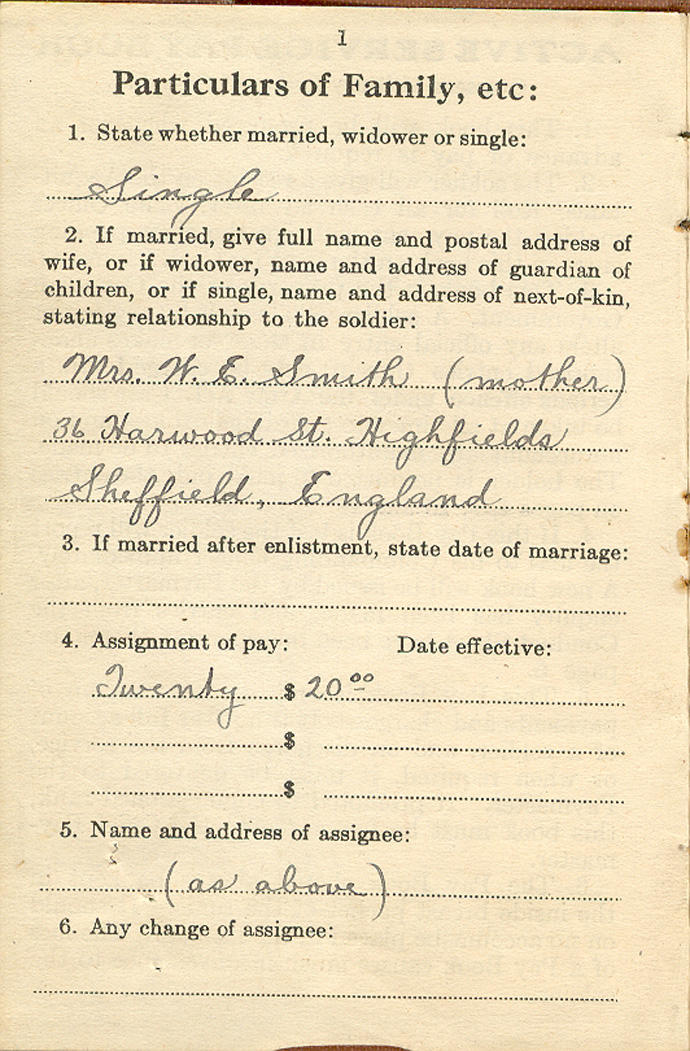 1
Particulars of Family, etc:
1. State whether married, widower or single:
Single
2. If married, give full name and postal address of
wife, or if widower, name and address of guardian of
children, or if single, name and address of next-of-kin,
stating relationship to the soldier:
Mrs. W. E. Smith (mother)
36 Harwood St. Highfields
Sheffield, England
3. If married after enlistment, state date of marriage:
4. Assignment of pay: Date effective:
Twenty $ 20.00
$
$
5. Name and address of assignee:
(as above)
6. Any change of assignee: